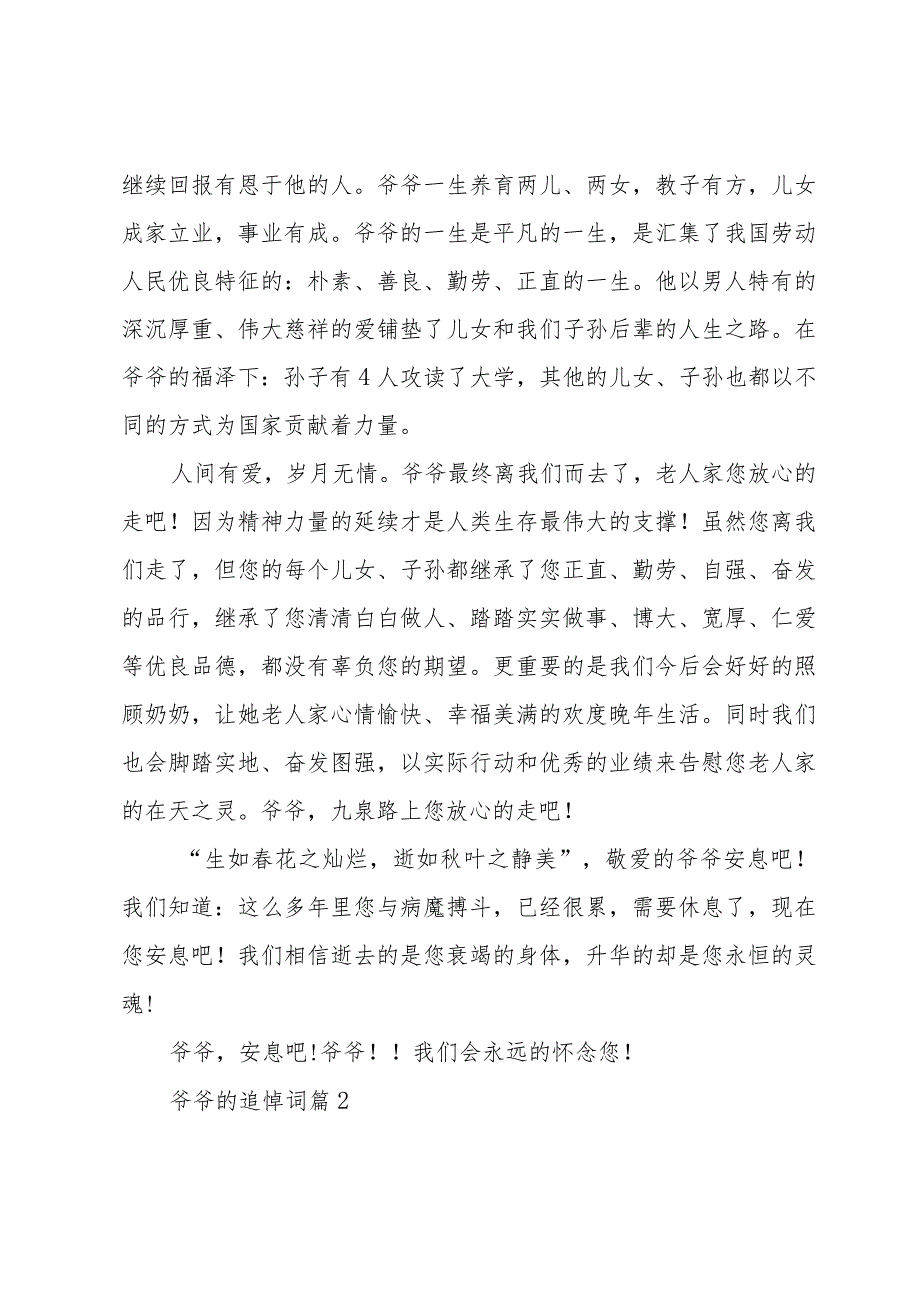 继续回报有恩于他的人。爷爷一生养育两儿、两女，教子有方，儿女
成家立业，事业有成。爷爷的一生是平凡的一生，是汇集了我国劳动
人民优良特征的：朴素、善良、勤劳、正直的一生。他以男人特有的
深沉厚重、伟大慈祥的爱铺垫了儿女和我们子孙后辈的人生之路。在
爷爷的福泽下：孙子有4人攻读了大学，其他的儿女、子孙也都以不
同的方式为国家贡献着力量。
人间有爱，岁月无情。爷爷最终离我们而去了，老人家您放心的
走吧！因为精神力量的延续才是人类生存最伟大的支撑！虽然您离我
们走了，但您的每个儿女、子孙都继承了您正直、勤劳、自强、奋发
的品行，继承了您清清白白做人、踏踏实实做事、博大、宽厚、仁爱
等优良品德，都没有辜负您的期望。更重要的是我们今后会好好的照
顾奶奶，让她老人家心情愉快、幸福美满的欢度晚年生活。同时我们
也会脚踏实地、奋发图强，以实际行动和优秀的业绩来告慰您老人家
的在天之灵。爷爷，九泉路上您放心的走吧！
“生如春花之灿烂，逝如秋叶之静美”，敬爱的爷爷安息吧！
我们知道：这么多年里您与病魔搏斗，已经很累，需要休息了，现在
您安息吧！我们相信逝去的是您衰竭的身体，升华的却是您永恒的灵
魂!
爷爷，安息吧!爷爷！！我们会永远的怀念您！
爷爷的追悼词篇2